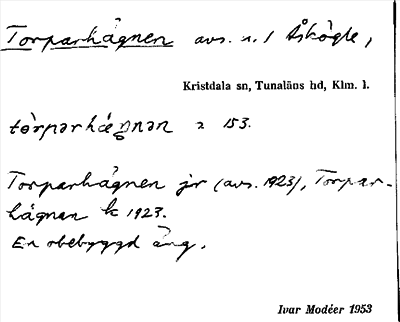 Torparhägnen avs. n. 1 Åskögle,
Kristdala sn, Tunaläns hd, Klm. l.
tòrparhæ̀gnan 2 153.
Torparhägnen jr (avs. 1923), Torpar-
hägnen k 1923.
En obebyggd äng.
Ivar Modéer 1953